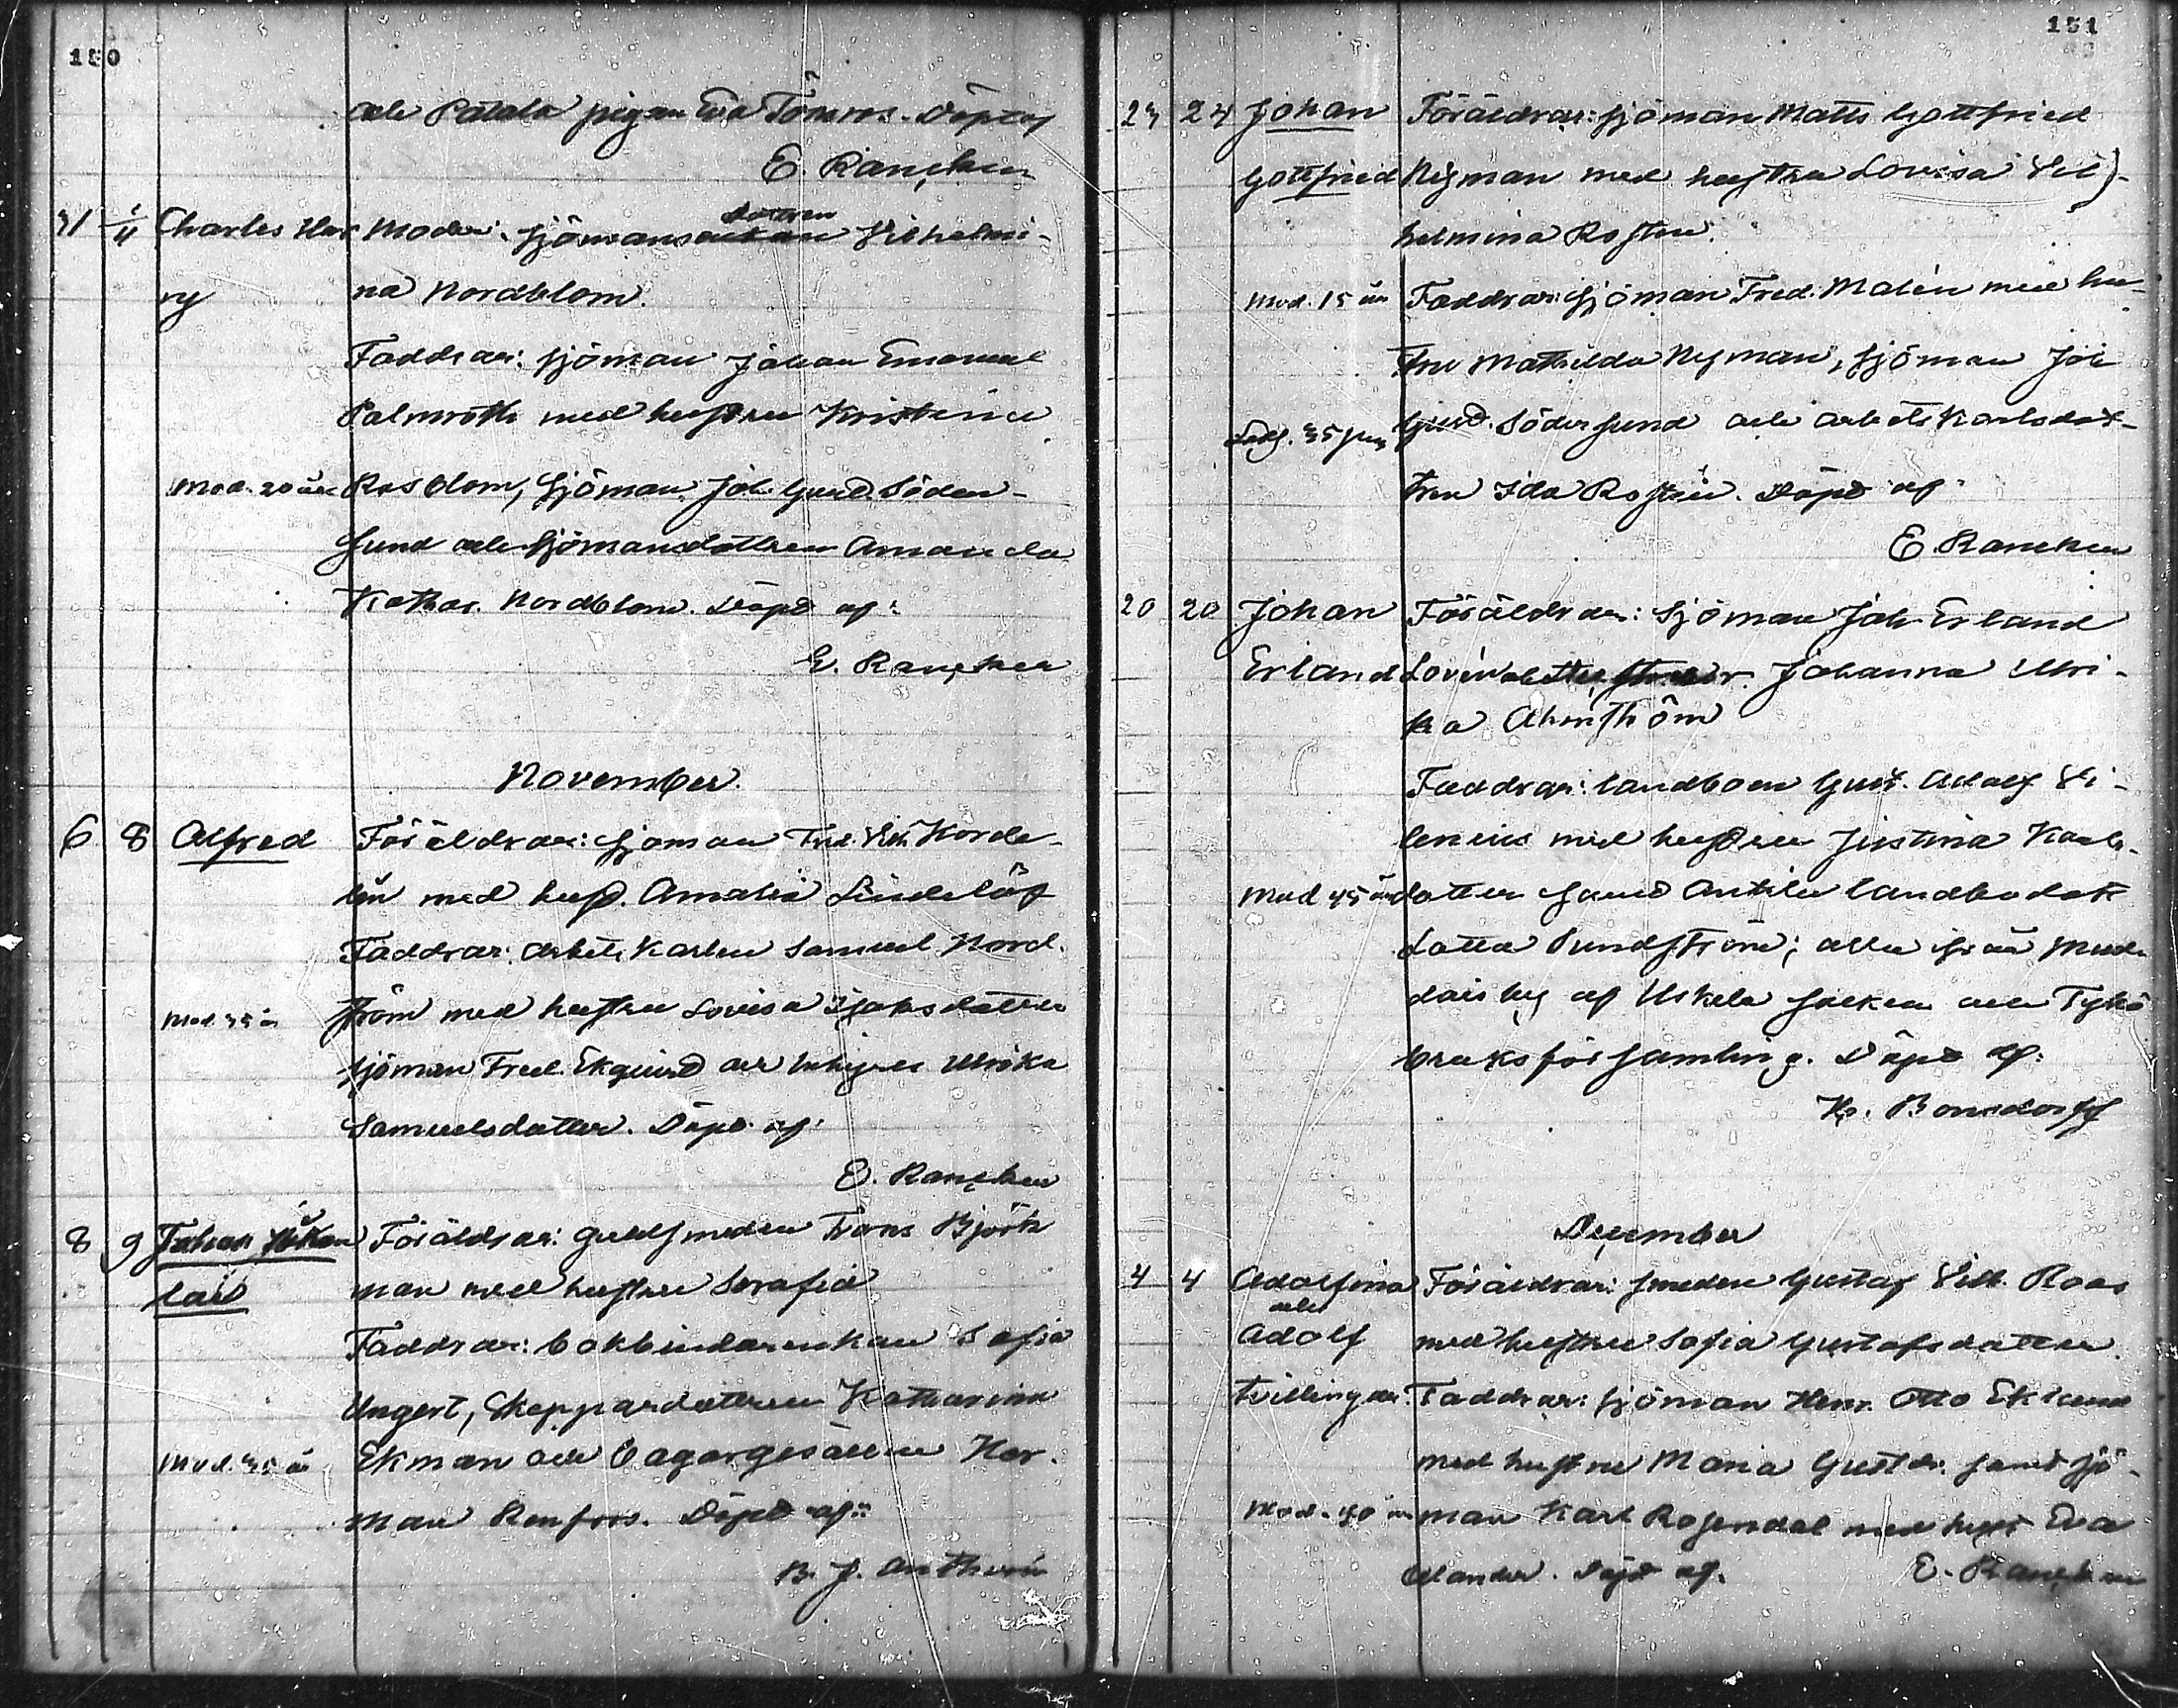 150
och Patala pigan Eva Tömros. Döpt af
E. Rancken
31 1/11 Charles Hen Moder: Sjömans dottren Vilhelmi-
ry na Nordblom.
Faddrar: Sjöman Johan Emanuel
Palmroth med hustru Kristina
Mod. 20 år Rosblom, Sjöman Joh. Gust. Söder-
sund och Sjömansdottren Amanda
Kathar. Nordblom. Döpt af:
E. Rancken
November.
6 8 Alfred Föräldrar: Sjöman Fred. Vilh. Korde-
lin med hust. Amalia Lindelöf
Faddrar: Arbets Karlen Samuel Nord.
Mod. 35 år ström med hustru Lovisa Isaksdotter
Sjöman Fred. Ekqvist och Ulrika
Samuelsdotter. Döpt af:
E. Rancken
8 9 Johan Håkan Föräldrar: Guldsmeden Frans Björk
man med hustru Serafia
Faddrar: bokbindarenkan Sofia
Ungert, Skeppardottren Katharina
Mod. 35 år Ekman och Bagargesällen Her.
man Renfors. Döpt af:
B. J. Anthoni
151
24 24 Johan Föräldrar: Sjöman Matts Gottfried
Gottfried Nyman med hustru Lovisa Vil-
helmina Rosten.
Mod. 15 år Faddrar: Sjöman Fred. Malén med hu-
stru Mathilda Nyman, Sjöman Joh
Gust. Södersund och arbets Karlsdot-
tren Ida Rosten. Döpt af
E. Rancken
20 20 Johan Föräldrar: Sjöman Joh. Erland
Erland Lovén Johanna Ulri-
ka Almström
Faddrar: landboen Gust. Adolf Vi-
lenius med hustru Justina Karls-
Mod 45 år dotter samt landbodott
Lotta Sundström; alla från
by af Uskela socken och Tykö
bruksförsamling. Döpt af:
K. Bonsdorff
December
4 4 Adolfina Föräldrar: Smeden Gustaf Vilh. Roos
och
Adolf med hustru Sofia Gustafsdotter.
tvillingar. Faddrar: Sjöman Henr. Otto Eklund
med hustru Maria Gustdr. samt Sjö-
Mod. 40 år man Karl Rosendal med hust Eva
Elander. Döpt af. E. Rancken